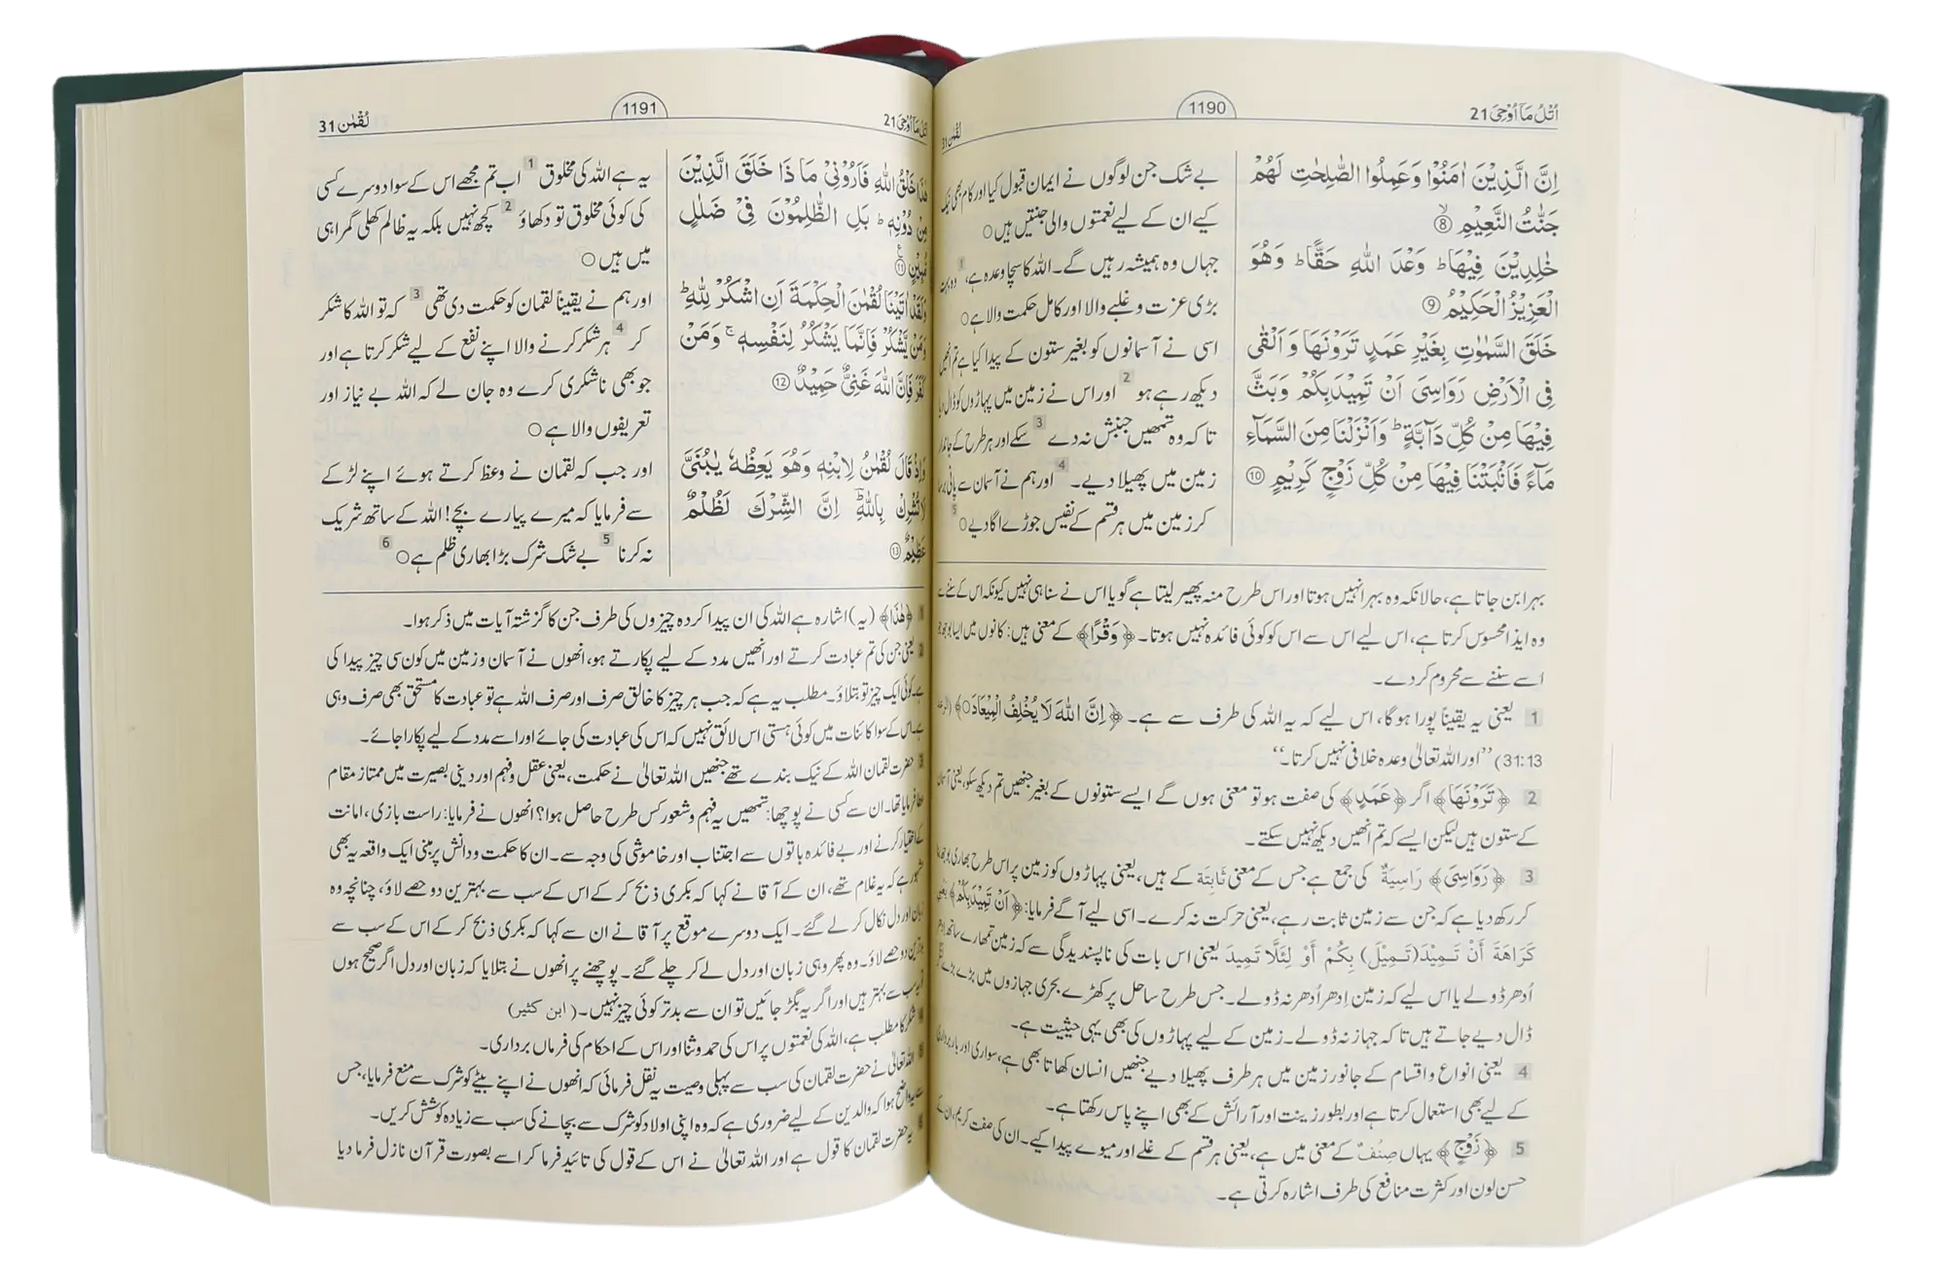 اُتْلُ مَآ اُوْحِیَ 21
1190
لُقْمٰن 31
اِنَّ الَّذِیْنَ اٰمَنُوْا وَعَمِلُوا الصّٰلِحٰتِ لَهُمْ
جَنّٰتُ النَّعِیْمِ ⑧
خٰلِدِیْنَ فِیْهَا ؕ وَعْدَ اللّٰهِ حَقًّا ؕ وَهُوَ
الْعَزِیْزُ الْحَكِیْمُ ⑨
خَلَقَ السَّمٰوٰتِ بِغَیْرِ عَمَدٍ تَرَوْنَهَا وَاَلْقٰی
فِی الْاَرْضِ رَوَاسِیَ اَنْ تَمِیْدَ بِكُمْ وَبَثَّ
فِیْهَا مِنْ كُلِّ دَآبَّةٍ ؕ وَاَنْزَلْنَا مِنَ السَّمَآءِ
مَآءً فَاَنْۢبَتْنَا فِیْهَا مِنْ كُلِّ زَوْجٍ كَرِیْمٍ ⑩
بے شک جن لوگوں نے ایمان قبول کیا اور کام بھی نیک
کیے ان کے لیے نعمتوں والی جنتیں ہیں○
جہاں وہ ہمیشہ رہیں گے۔ اللہ کا سچا وعدہ ہے، 1 وہ بہت
بڑی عزت و غلبے والا اور کامل حکمت والا ہے○
اسی نے آسمانوں کو بغیر ستون کے پیدا کیا ہے تم انھیں
دیکھ رہے ہو 2 اور اس نے زمین میں پہاڑوں کو ڈال دیا
تا کہ وہ تمھیں جنبش نہ دے 3 سکے اور ہر طرح کے جاندار
زمین میں پھیلا دیے۔ 4 اور ہم نے آسمان سے پانی برسا
کر زمین میں ہر قسم کے نفیس جوڑے اگا دیے○ 5
بہرا بن جاتا ہے، حالانکہ وہ بہرا نہیں ہوتا اور اس طرح منہ پھیر لیتا ہے گویا اس نے سنا ہی نہیں کیونکہ اس کے سننے سے
وہ ایذا محسوس کرتا ہے، اس لیے اس سے اس کو کوئی فائدہ نہیں ہوتا۔ ﴿وَقْرًا﴾ کے معنی ہیں: کانوں میں ایسا بوجھ جو
اسے سننے سے محروم کر دے۔
1 یعنی یہ یقیناً پورا ہوگا، اس لیے کہ یہ اللہ کی طرف سے ہے۔ ﴿اِنَّ اللّٰهَ لَا یُخْلِفُ الْمِیْعَادَ○﴾ (الرعد
31:13) ”اور اللہ تعالیٰ وعدہ خلافی نہیں کرتا۔“
2 ﴿تَرَوْنَهَا﴾ اگر ﴿عَمَدٍ﴾ کی صفت ہو تو معنی ہوں گے ایسے ستونوں کے بغیر جنھیں تم دیکھ سکو، یعنی آسمان
کے ستون ہیں لیکن ایسے کہ تم انھیں دیکھ نہیں سکتے۔
3 ﴿رَوَاسِیَ﴾ رَاسِیَةٌ کی جمع ہے جس کے معنی ثَابِتَة کے ہیں، یعنی پہاڑوں کو زمین پر اس طرح بھاری بوجھ بنا
کر رکھ دیا ہے کہ جن سے زمین ثابت رہے، یعنی حرکت نہ کرے۔ اسی لیے آگے فرمایا: ﴿اَنْ تَمِیْدَ بِكُمْ﴾ یعنی
كَرَاهَةَ أَنْ تَـمِيْدَ (تَـمِيْلَ) بِكُمْ أَوْ لِئَلَّا تَمِيدَ یعنی اس بات کی ناپسندیدگی سے کہ زمین تمھارے ساتھ
اُدھر ڈولے یا اس لیے کہ زمین اِدھر اُدھر نہ ڈولے۔ جس طرح ساحل پر کھڑے بحری جہازوں میں بڑے بڑے لنگر
ڈال دیے جاتے ہیں تا کہ جہاز نہ ڈولے۔ زمین کے لیے پہاڑوں کی بھی یہی حیثیت ہے۔
4 یعنی انواع و اقسام کے جانور زمین میں ہر طرف پھیلا دیے جنھیں انسان کھاتا بھی ہے، سواری اور باربرداری
کے لیے بھی استعمال کرتا ہے اور بطور زینت اور آرائش کے بھی اپنے پاس رکھتا ہے۔
5 ﴿زَوْجٍ﴾ یہاں صِنْفٌ کے معنی میں ہے، یعنی ہر قسم کے غلے اور میوے پیدا کیے۔ ان کی صفت کریم، ان کے
حسن لون اور کثرت منافع کی طرف اشارہ کرتی ہے۔
اُتْلُ مَآ اُوْحِیَ 21
1191
لُقْمٰن 31
هٰذَا خَلْقُ اللّٰهِ فَاَرُوْنِیْ مَا ذَا خَلَقَ الَّذِیْنَ
مِنْ دُوْنِهٖ ؕ بَلِ الظّٰلِمُوْنَ فِیْ ضَلٰلٍ
مُّبِیْنٍ ⑪
وَلَقَدْ اٰتَیْنَا لُقْمٰنَ الْحِكْمَةَ اَنِ اشْكُرْ لِلّٰهِ ؕ
وَمَنْ یَّشْكُرْ فَاِنَّمَا یَشْكُرُ لِنَفْسِهٖ ۚ وَمَنْ
كَفَرَ فَاِنَّ اللّٰهَ غَنِیٌّ حَمِیْدٌ ⑫
وَاِذْ قَالَ لُقْمٰنُ لِابْنِهٖ وَهُوَ یَعِظُهٗ یٰبُنَیَّ
لَا تُشْرِكْ بِاللّٰهِ ؔؕ اِنَّ الشِّرْكَ لَظُلْمٌ
عَظِیْمٌ ⑬
یہ ہے اللہ کی مخلوق 1 اب تم مجھے اس کے سوا دوسرے کسی
کی کوئی مخلوق تو دکھاؤ 2 کچھ نہیں بلکہ یہ ظالم کھلی گمراہی
میں ہیں○
اور ہم نے یقیناً لقمان کو حکمت دی تھی 3 کہ تو اللہ کا شکر
کر 4 ہر شکر کرنے والا اپنے نفع کے لیے شکر کرتا ہے اور
جو بھی ناشکری کرے وہ جان لے کہ اللہ بے نیاز اور
تعریفوں والا ہے○
اور جب کہ لقمان نے وعظ کرتے ہوئے اپنے لڑکے
سے فرمایا کہ میرے پیارے بچے! اللہ کے ساتھ شریک
نہ کرنا 5 بے شک شرک بڑا بھاری ظلم ہے○ 6
1 ﴿هٰذَا﴾ (یہ) اشارہ ہے اللہ کی ان پیدا کردہ چیزوں کی طرف جن کا گزشتہ آیات میں ذکر ہوا۔
2 یعنی جن کی تم عبادت کرتے اور انھیں مدد کے لیے پکارتے ہو، انھوں نے آسمان و زمین میں کون سی چیز پیدا کی
ہے۔ کوئی ایک چیز تو بتلاؤ۔ مطلب یہ ہے کہ جب ہر چیز کا خالق صرف اور صرف اللہ ہے تو عبادت کا مستحق بھی صرف وہی
ہے۔ اس کے سوا کائنات میں کوئی ہستی اس لائق نہیں کہ اس کی عبادت کی جائے اور اسے مدد کے لیے پکارا جائے۔
3 حضرت لقمان اللہ کے نیک بندے تھے جنھیں اللہ تعالیٰ نے حکمت، یعنی عقل و فہم اور دینی بصیرت میں ممتاز مقام
عطا فرمایا تھا۔ ان سے کسی نے پوچھا: تمھیں یہ فہم و شعور کس طرح حاصل ہوا؟ انھوں نے فرمایا: راست بازی، امانت
کے اختیار کرنے اور بے فائدہ باتوں سے اجتناب اور خاموشی کی وجہ سے۔ ان کا حکمت و دانش پر مبنی ایک واقعہ یہ بھی
مشہور ہے کہ یہ غلام تھے، ان کے آقا نے کہا کہ بکری ذبح کر کے اس کے سب سے بہترین دو حصے لاؤ، چنانچہ وہ
زبان اور دل نکال کر لے گئے۔ ایک دوسرے موقع پر آقا نے ان سے کہا کہ بکری ذبح کر کے اس کے سب سے
بدترین دو حصے لاؤ۔ وہ پھر وہی زبان اور دل لے کر چلے گئے۔ پوچھنے پر انھوں نے بتلایا کہ زبان اور دل اگر صحیح ہوں
تو یہ سب سے بہتر ہیں اور اگر یہ بگڑ جائیں تو ان سے بدتر کوئی چیز نہیں۔ (ابن کثیر)
4 شکر کا مطلب ہے، اللہ کی نعمتوں پر اس کی حمد و ثنا اور اس کے احکام کی فرماں برداری۔
5 اللہ تعالیٰ نے حضرت لقمان کی سب سے پہلی وصیت یہ نقل فرمائی کہ انھوں نے اپنے بیٹے کو شرک سے منع فرمایا، جس
سے یہ واضح ہوا کہ والدین کے لیے ضروری ہے کہ وہ اپنی اولاد کو شرک سے بچانے کی سب سے زیادہ کوشش کریں۔
6 یہ حضرت لقمان کا قول ہے اور اللہ تعالیٰ نے اس کے قول کی تائید فرما کر اسے بصورت قرآن نازل فرما دیا